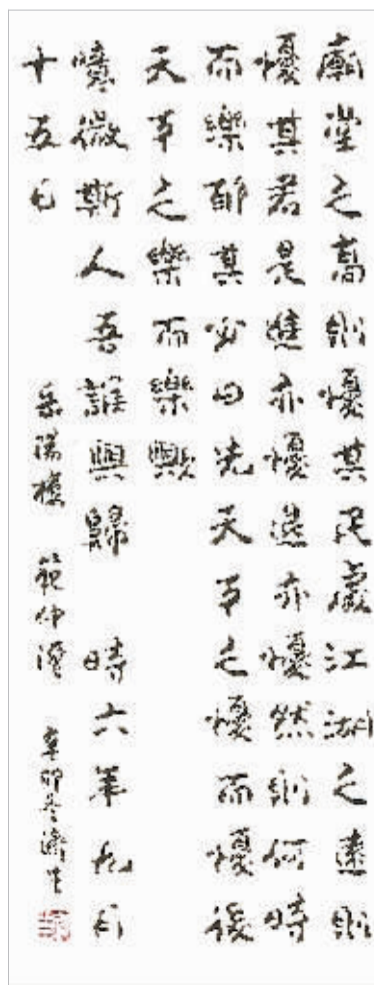 廟堂之高則懮其民處江湖之遠則
懮其君是進亦懮退亦懮然則何時
而樂耶其必曰先天下之懮而懮後
天下之樂而樂歟
噫微斯人吾誰與歸 時六年九月
十五日 岳陽樓 範仲淹 辛卯冬濟生